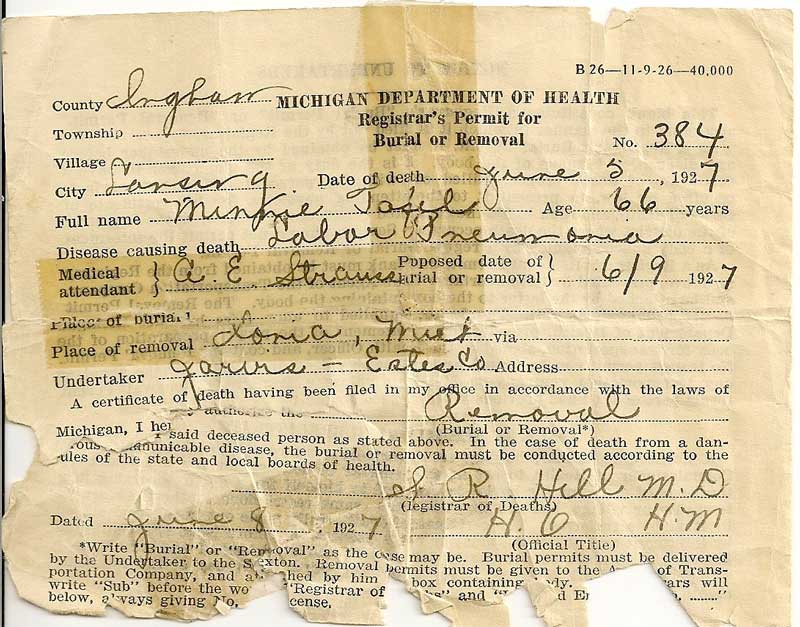 B 26—11-9-26—40,000
County Ingham
MICHIGAN DEPARTMENT OF HEALTH
Registrar's Permit for
Burial or Removal
Township
No. 384
Village
City Lansing Date of death June 5, 1927
Full name Minnie Age 66 years
Disease causing death Lobar Pneumonia
Medical attendant } A. E. Strauss
Poposed date of arial or removal } 6/9 1927
Place of burial
Place of removal Ionia, Mich via
Undertaker Jarvis - Estes Co Address
A certificate of death having been filed in my office in accordance with the laws of
authorize the Removal
Michigan, I her
(Burial or Removal*)
said deceased person as stated above. In the case of death from a dan-
rous municable disease, the burial or removal must be conducted according to the
rules of the state and local boards of health.
R. Hill M.D
(legistrar of Deaths)
Dated June 8, 1927 H. O H.M
(Official Title)
*Write "Burial" or "Removal" as the case may be. Burial permits must be delivered
by the Undertaker to the Sexton. Removal permits must be given to the A of Trans-
portation Company, and a hed by him box containing ody. ears will
write "Sub" before the wo "Registrar of hs" and
below, always giving No. cense.